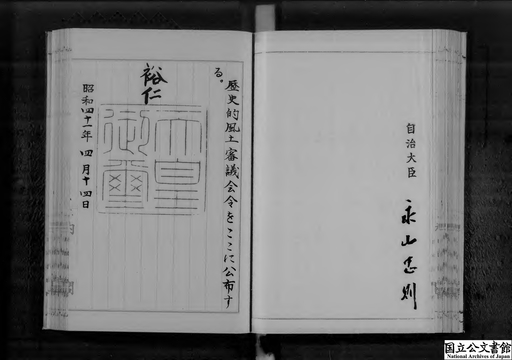 自治大臣
永山忠則
歴史的風土審議会令をここに公布す
る。
裕仁
天皇
御璽
昭和四十一年四月十四日
国立公文書館
National Archives of Japan